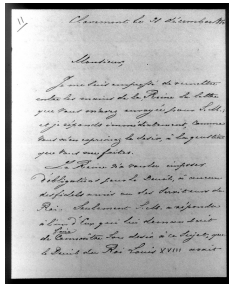 11
Claremont le 31 décembre 18
Monsieur,
Je me suis empressé de remettre
entre les mains de la Reine la lettre
que vous m'avez envoyée pour S.M.
et je réponds immédiatement comme
vous m'en exprimez le désir, à la question
que vous me faites.
La Reine n'a voulu imposer
d'obligation pour le Deuil, à aucun
des fidèles amis ou des Serviteurs du
Roi. Seulement S.M. a répondu
à ceux d'Eux qui lui demandaient
connaître Son désir à ce Sujet, que
le Deuil du Roi Louis XVIII avait